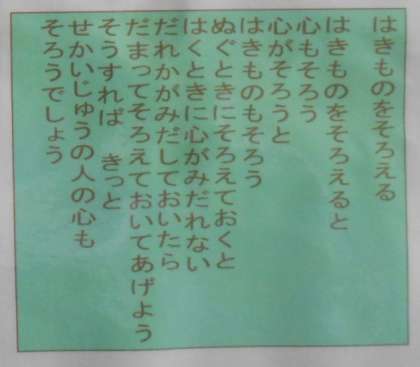 はきものをそろえる
はきものをそろえると
心もそろう
心がそろうと
はきものもそろう
ぬぐときにそろえておくと
はくときに心がみだれない
だれかがみだしておいたら
だまってそろえておいてあげよう
そうすれば　きっと
せかいじゅうの人の心も
そろうでしょう